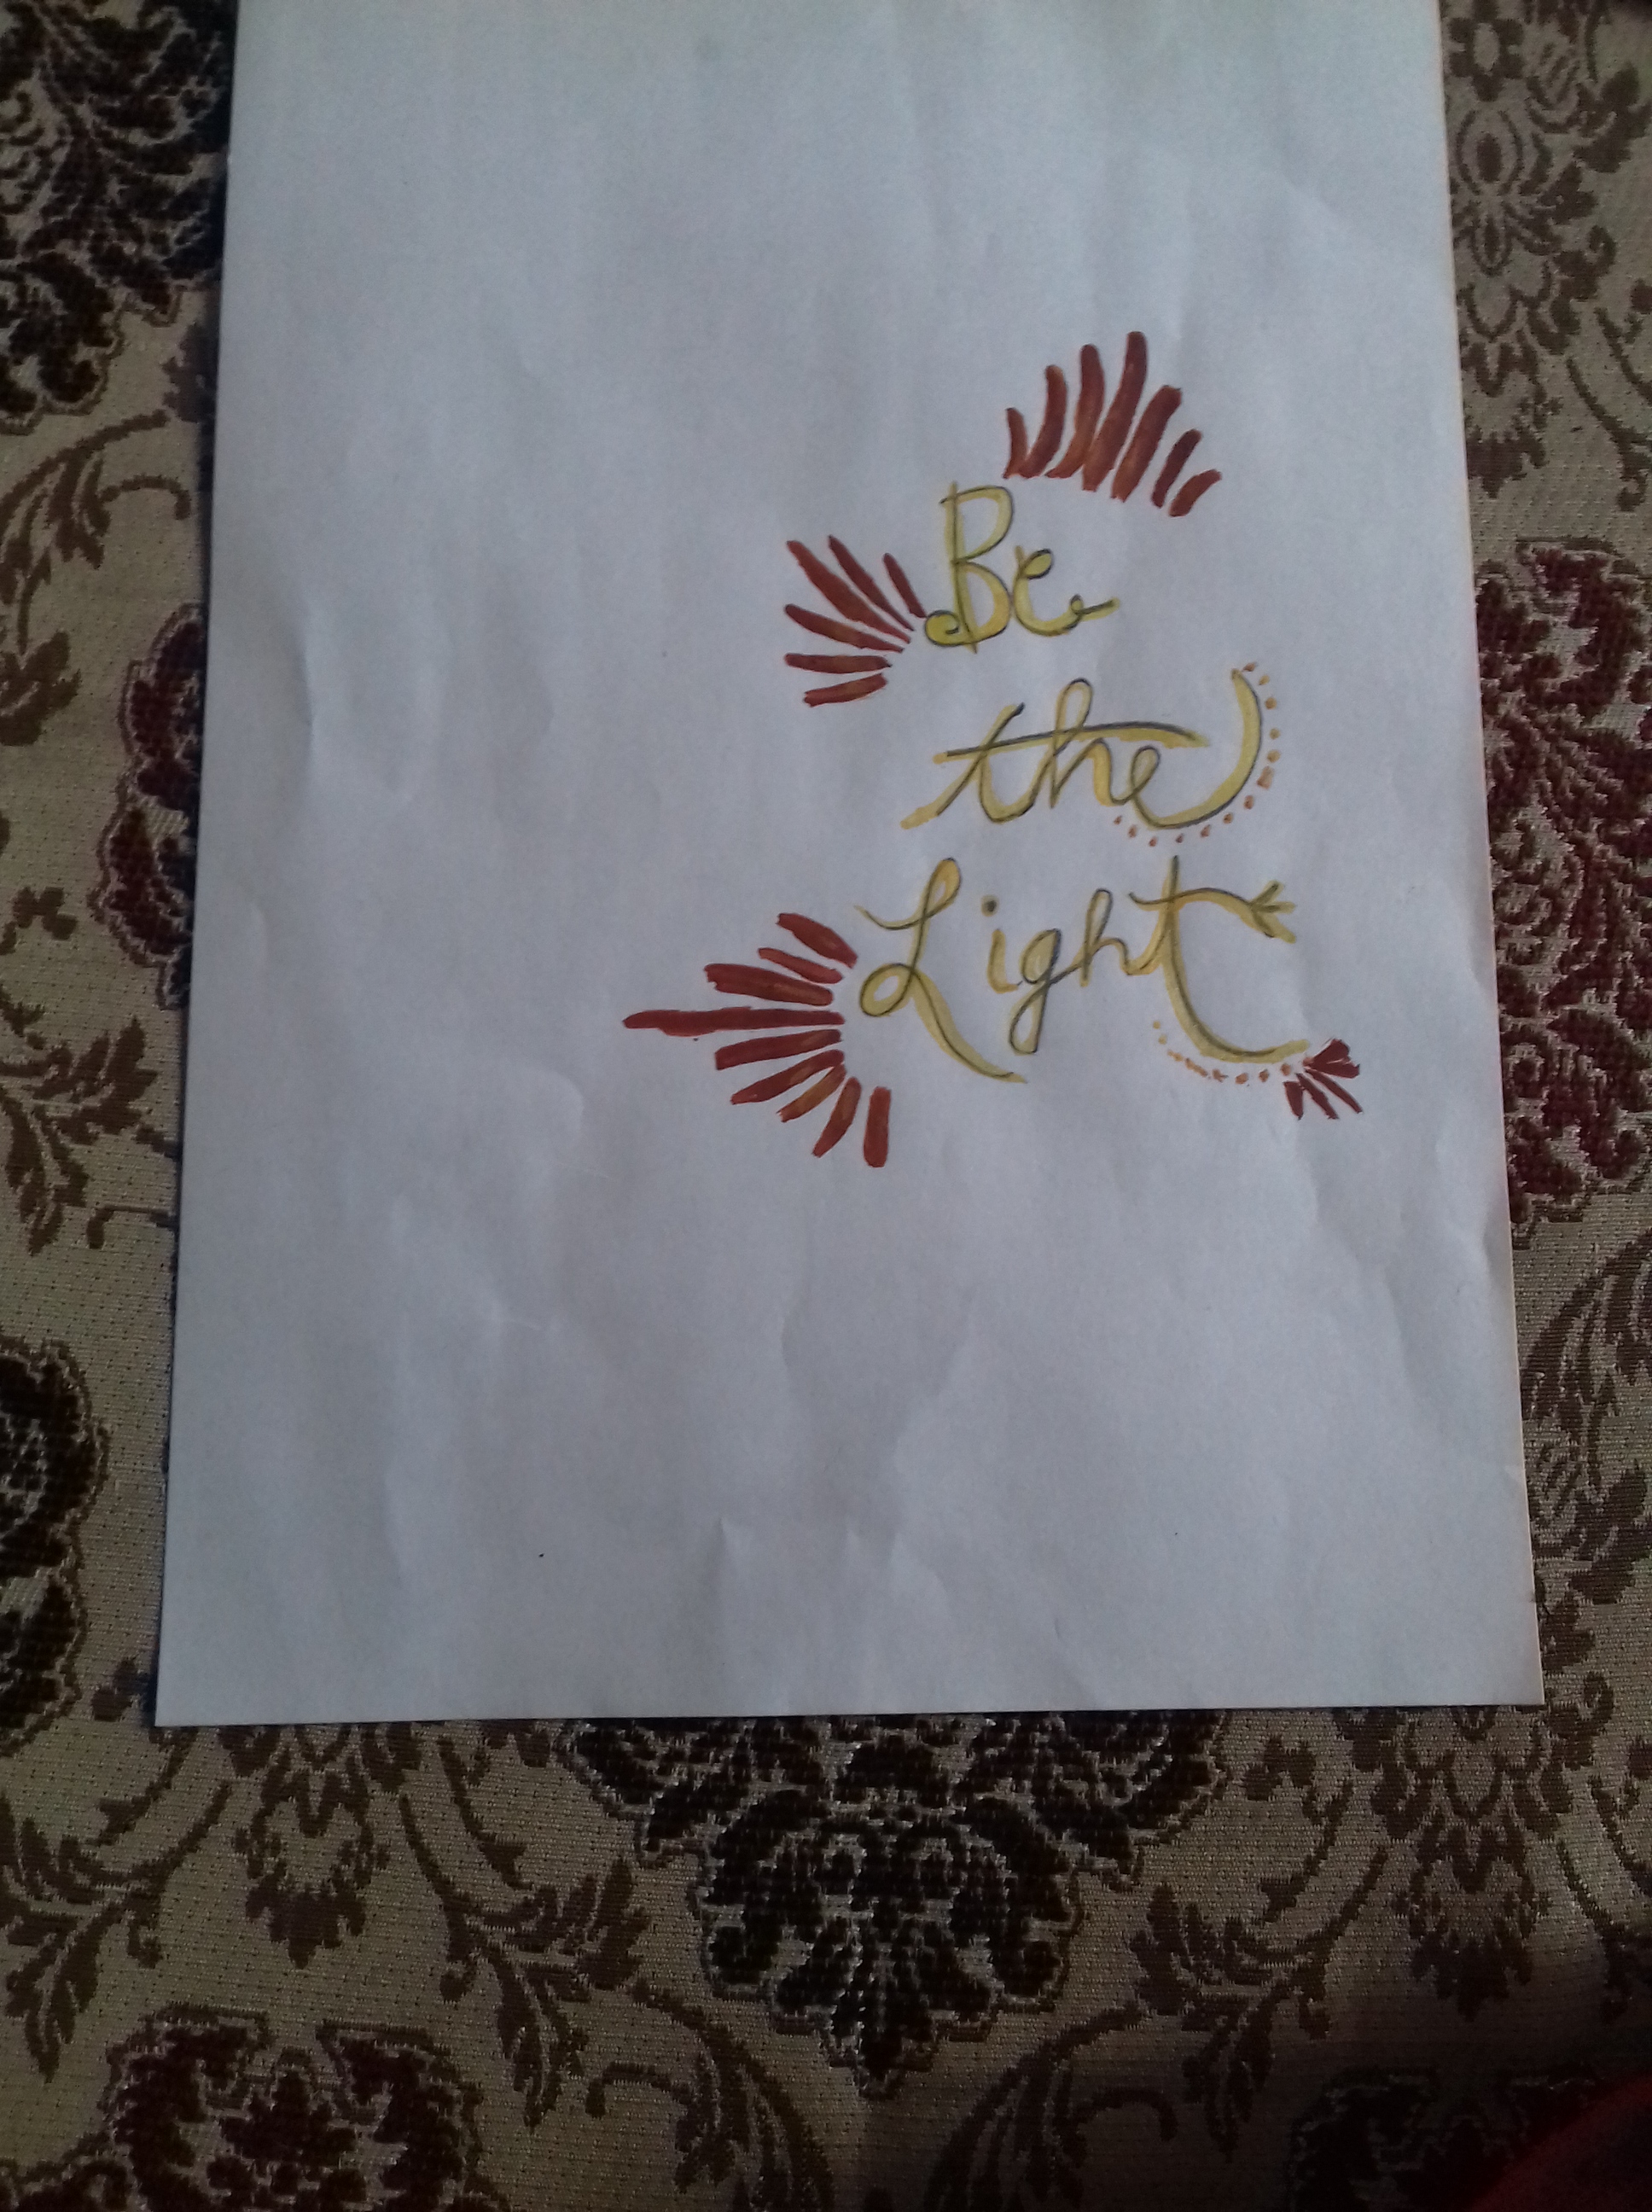 Be
the
Light